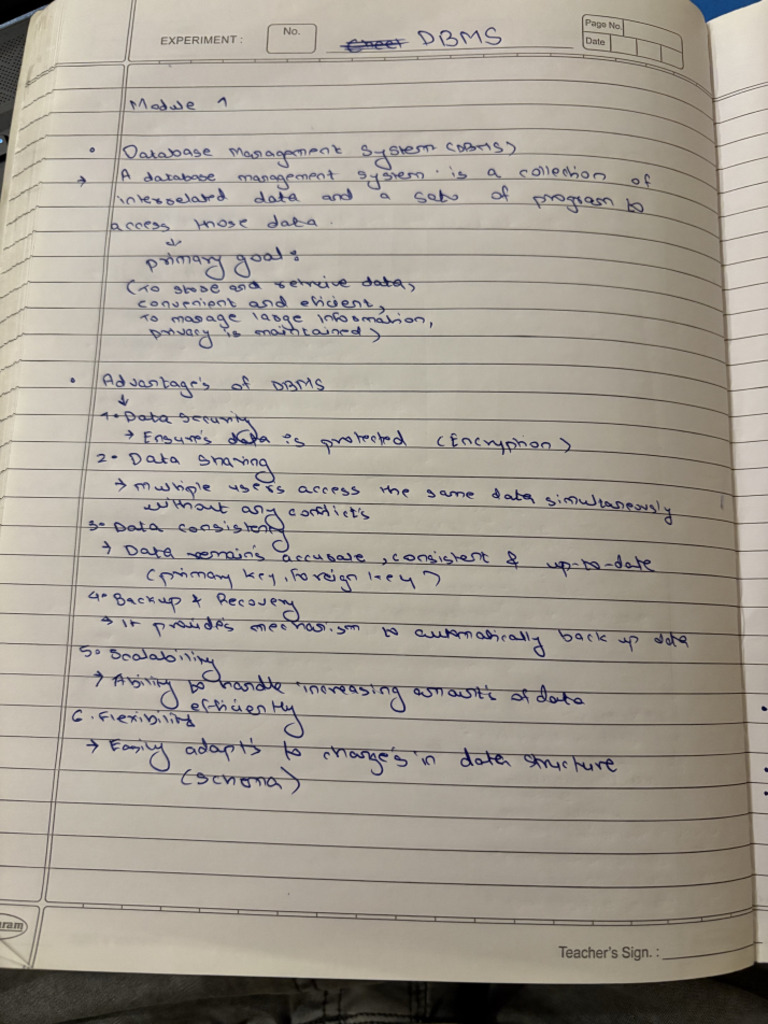 EXPERIMENT :
No.
DBMS
Page No.
Date
Module 1
• Database Management System (DBMS)
→ A database management system is a collection of
interrelated data and a sets of program to
access those data.
↓
primary goal :
(To store and retreive data,
convenient and eficient,
To manage large information,
privacy is maintained)
• Advantage's of DBMS
↓
1• Data Security
→ Ensure's data is protected (Encryption)
2• Data sharing
→ multiple users access the same data simultaneously
without any conflict's
3• Data consistency
→ Data remain's accurate, consistent & up-to-date
(primary key, Foreign key)
4• Backup & Recovery
→ It provide's mechanism to automatically back up data
5• Scalability
→ Ability to handle increasing amount's of data
efficiently
6. Flexibility
→ Easily adapt's to change's in data structure
(schema)
ram
Teacher's Sign. :